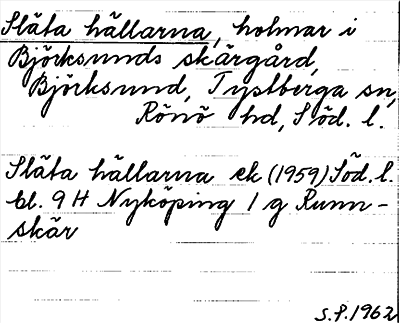 Släta hällarna, holmar i
Björksunds skärgård,
Björksund, Tystberga sn,
Rönö hd, Söd. l.
Släta hällarna ek (1959) Söd. l.
bl. 9 H Nyköping 1 g Runn-
skär
S.P. 1962